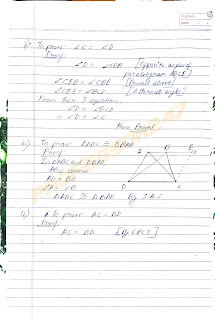 To prove ∠C = ∠D
Proof:
∠D = ∠CEB [Opposite angles of
parallelogram AECD]
∠CEB = ∠CBE [Proved above]
∠CBE = ∠BCD [Alternate angle]
From these 3 equations,
∠D = ∠BCD
∠D = ∠C
Hence Proved
iii) To prove: ΔABC ≅ ΔBAD
Proof:
In ΔABC and ΔBAD,
AB = common
AD = BC
∠A = ∠B
ΔABC ≅ ΔBAD By S.A.S
A B E
D C
iv) To prove AC = BD
Proof
AC = BD [By CPCT]